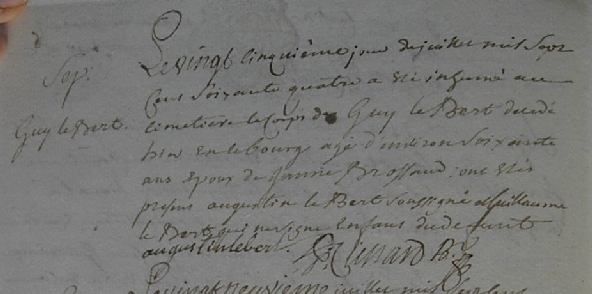 Sep.
Guy le Bert.
Le vingt cinquième jour de juillet mil sept
cens soixante quatre a été inhumé au
cemetière le corps de Guy le Bert décédé
hier en le bourg agé d'environ soixante
ans époux de Jeanne Brossaud; ont étés
presens augustin le Bert soussigné et Guillaume
le Bert qui ne signe Enfans du défunt
augustin lebert.
Le vingt neuvième juillet mil sept cens